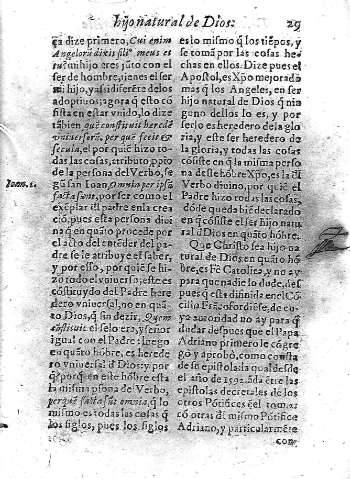 hijo natural de Dios.
29
ça dize primero, Cui enim
Angelorũ dixit filius meus es
tu: mi hijo eres, jũto con el
ser de hombre, tienes el ser
mi hijo, y assi diferẽte de los
adoptiuos; agora q̃ esto cõ
sista en estar vnido, lo dize
tãbien quẽ constituit heredẽ
vniuersorũ, per quẽ fecit et
secula, el por qũe hizo to-
das las cosas, atributo, ppio
de la persona del Verbo, se
gũ san Ioan, Omnia per ipsũ
facta sunt, por ser como el
ex del padre en la crea
ciõ, pues esta persona diui
na q̃ en quãto procede por
el acto del entẽder del pa-
dre se le atribuye el saber,
y por esso, por quiẽ se hi-
zo todo el vniuerso; este es
cõstituydo del Padre here
dero vniuersal, no en quã-
to Dios, q̃ sin dezir, Quem
cõstituit el se lo era, y señor
igual con el Padre: luego
en quãto hõbre, es herede
ro vniuersal d̃ Dios: y por
q̃? porq̃ en este hõbre esta
la misma psona de Verbo,
per quẽ facta sũt omnia, q̃ lo
mismo es todas las cosas q̃
los siglos, pues los siglos
Ioan. 1.
es lo mismo q̃ los tiẽpos, y
se toma por las cosas he-
chas en ellos. Dize pues el
Apostol, es Xp̃o mejorado
mas q̃ los Angeles, en ser
hijo natural de Dios q̃ nin
guno dellos lo es, y por
serlo es heredero de la glo
ria, y este ser heredero de
la gloria, y todas las cosas
cõsiste en q̃ la misma perso
na deste hõbre Xp̃o, es la d̃l
Verbo diuino, por quiẽ el
Padre hizo todas las cosas,
dõde queda biẽ declarado
en q̃ cõsiste el ser hijo natu
ral d̃ Dios en quãto hõbre.
Que Christo sea hijo na
tural de Dios en quãto hõ
bre, es Fè Catolica, y no ay
para que nadie lo dude, des
pues q̃ esta difinida en el Cõ
cilio Frãcofordiẽse, de cu
ya autoridad no ay para q̃
dudar despues que el Papa
Adriano primero le cõgre
gò y aprobò, como consta
de su epistola la qual desde
el año de 1591. ãda ẽtre las
epistolas decretales de los
otros Põtifices ẽel tomo 
cõ otras d̃l mismo Põtifice
Adriano, y particularmẽte
con-